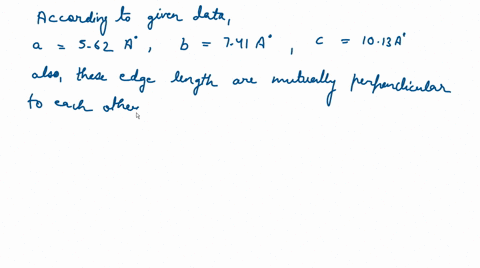 According to given data,
a = 5.62 A°, b = 7.41 A°, c = 10.13 A°
also, these edge length are mutually perpendicular
to each other